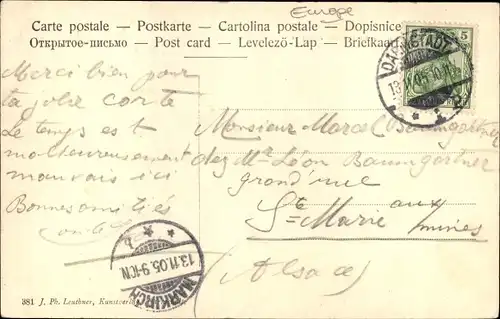 Europe
Carte postale — Postkarte — Cartolina postale — Dopisnice
Открытое-письмо — Post card — Levelező-Lap — Briefkaart
5
DARMSTADT
13
05
Merci bien pour
ta jolie carte
Le temps est
malheureusement
mauvais ici
Bonnes amitiés
Monsieur Marcel Baumgartner
chez Mr Léon Baumgartner
grand'rue
Ste Marie aux
mines
(Alsace)
MARKIRCH
13.11.05.9-10N
b
381 J. Ph. Leuthner, Kunstverl